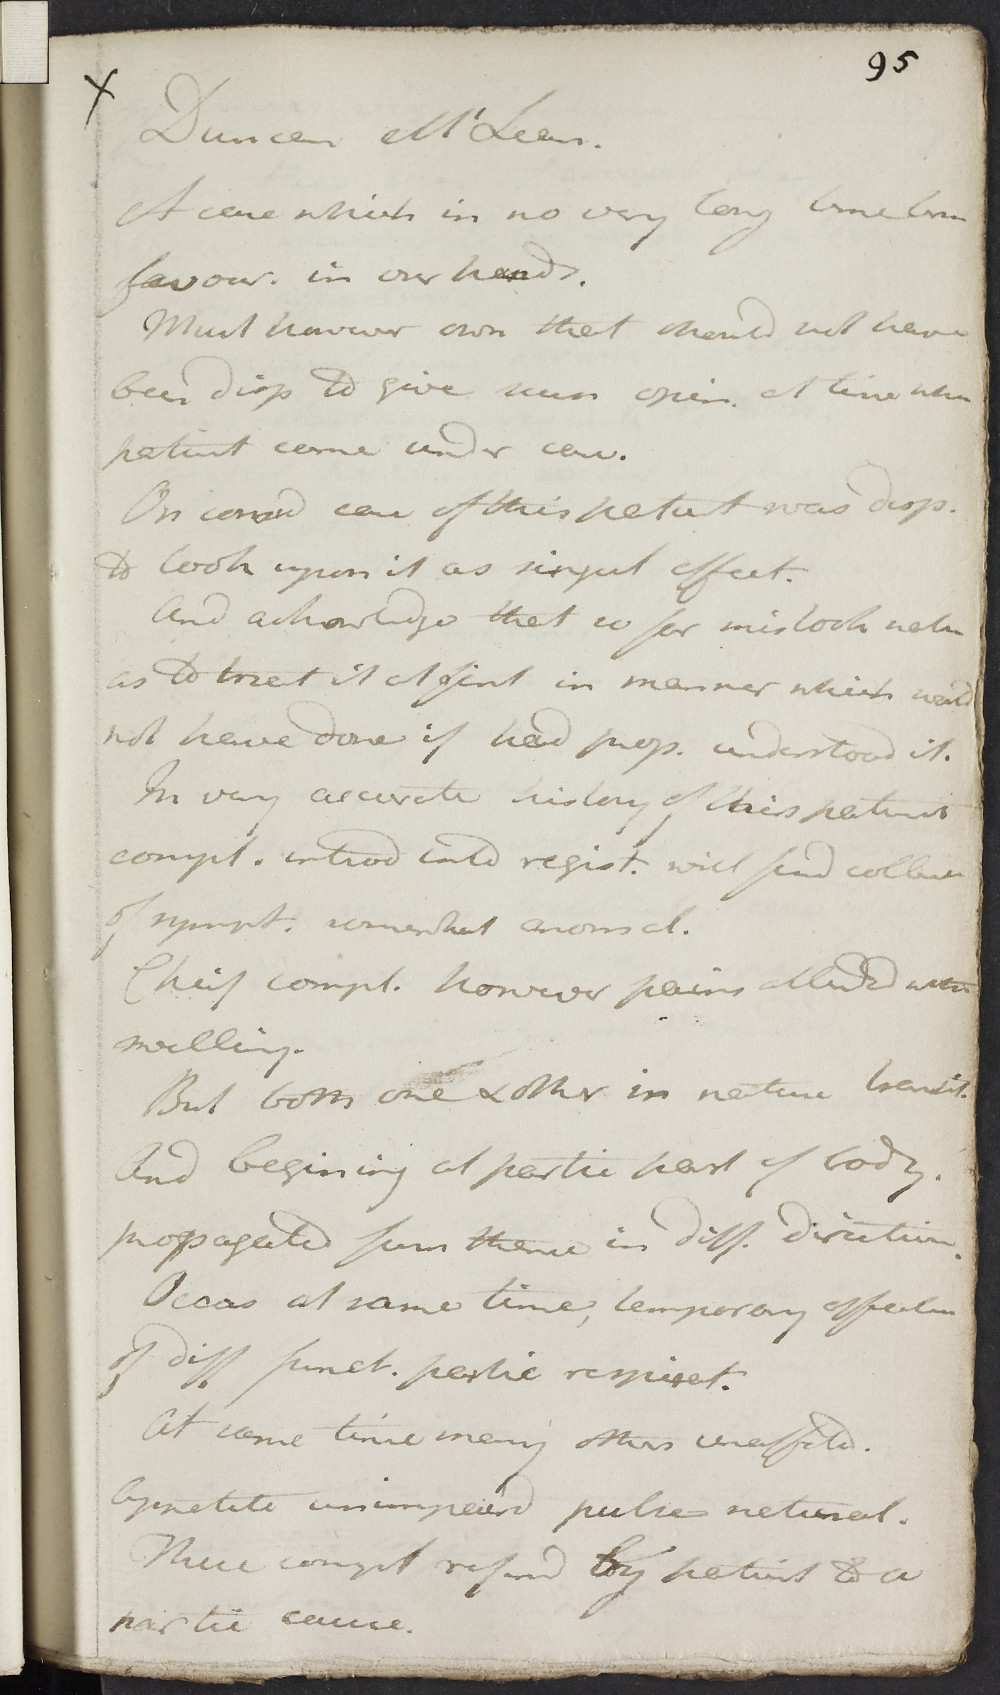 95
X
Duncan McLean.
A case which in no very long time turn
favour. in our hands.
Must however own that should not have
been disp to give such opin. at time when
patient came under care.
On considd case of this patient was disp.
to look upon it as singul affect.
And acknowledge that so far mistook natu
as to treat it at first in manner which would
not have done if had prop. understood it.
In very accurate history of this patients
compl. introd into regist. will find collecn
of sympt. somewhat anomal.
Cheif compl. however pains attended with
swelling.
But both one & other in nature transit.
And begining at partic part of body.
propagated from thence in diff. direction.
Occas at same time, temporary affection
of diff funct. partic respirat.
At same time many others unaffectd.
Appetite unimpaird pulse natural.
These compl referd by patient to a
partic cause.